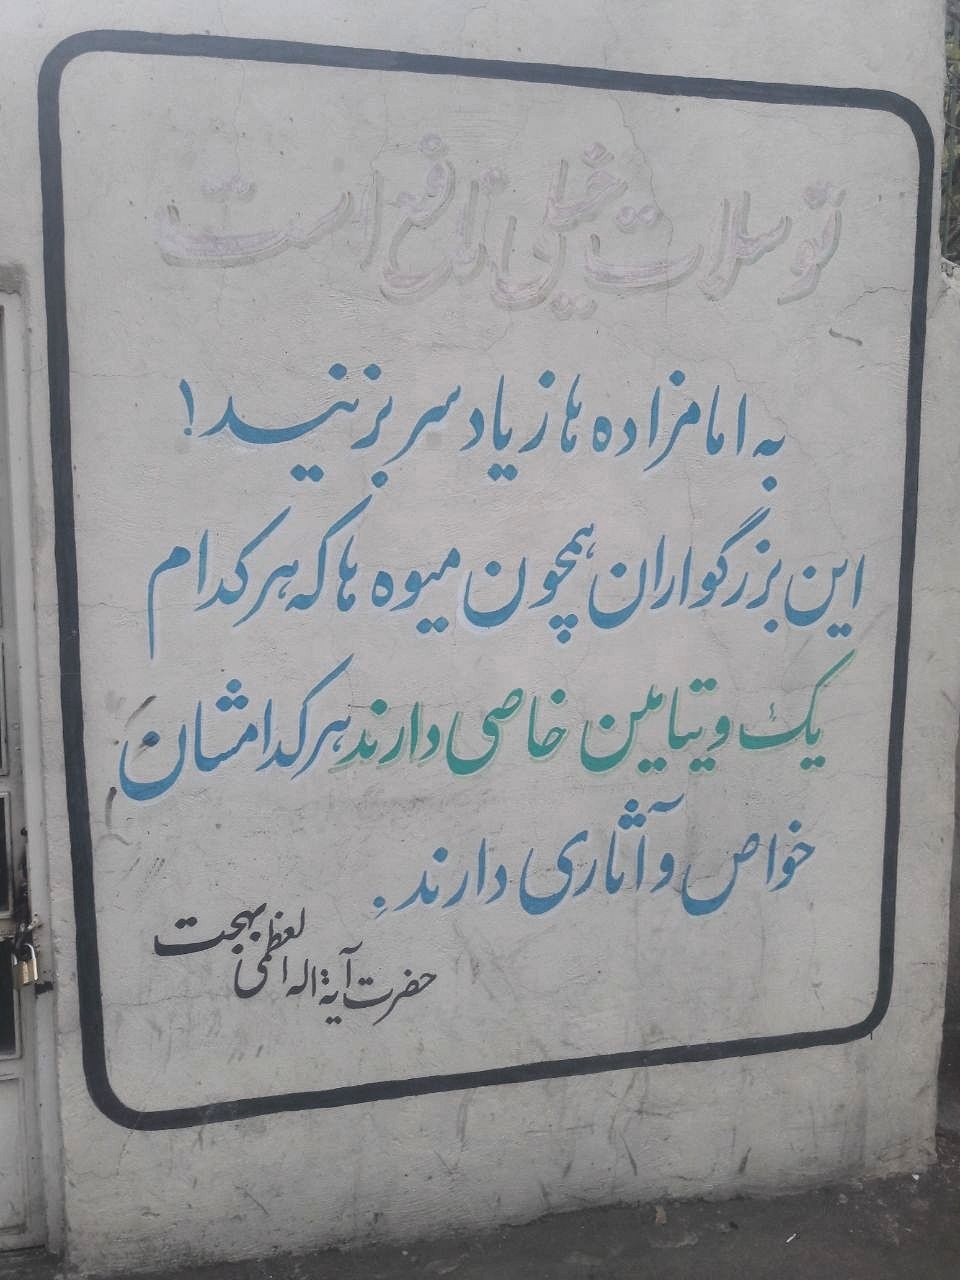 توسلات خیلی نافع است
به امامزاده ها زیاد سر بزنید!
این بزرگواران همچون میوه ها که هر کدام
یک ویتامین خاصی دارند هر کدامشان
خواص و آثاری دارند.
حضرت آیة اله العظمی بهجت